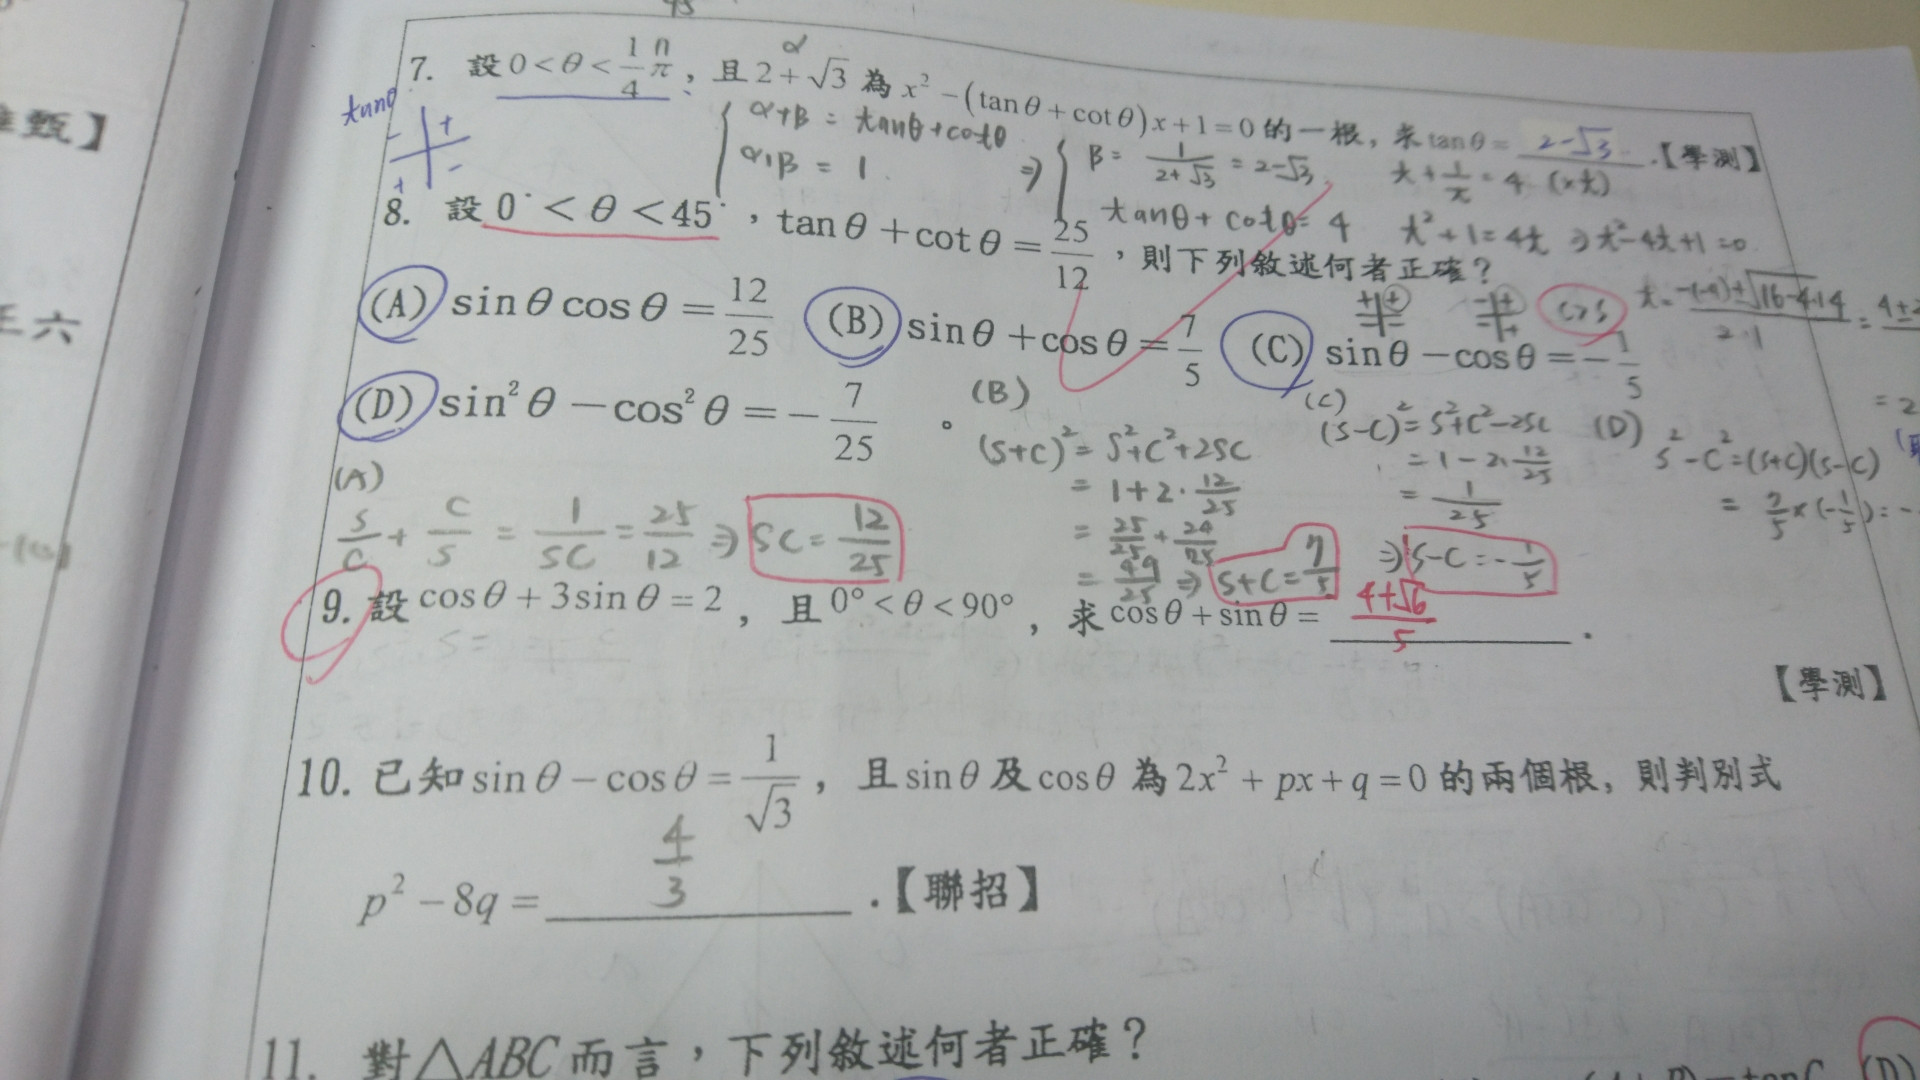 45
7. 設0<θ<1/4π,且2+√3為x²−(tanθ+cotθ)x+1=0的一根,求tanθ=2-√3.【學測】
α
tanθ
- + + -
α+β = tanθ+cotθ
α·β = 1
⇒ β = 1/(2+√3) = 2-√3,
tanθ+cotθ= 4
t+1/t = 4 (xt)
t²+1=4t ⇒ t²-4t+1=0
8. 設0°<θ<45°,tanθ+cotθ=25/12,則下列敘述何者正確?
(A) sinθcosθ=12/25 (B) sinθ+cosθ=7/5 (C) sinθ−cosθ=−1/5
c>s
(D) sin²θ−cos²θ=−7/25。
(A)
s/c + c/s = 1/sc = 25/12 ⇒ sc = 12/25
(B)
(s+c)²= s²+c²+2sc
= 1+2·12/25
= 25/25+24/25
= 49/25 ⇒ s+c=7/5
(c)
(s-c)²= s²+c²-2sc
= 1-2·12/25
= 1/25
⇒ s-c=-1/5
(D)
s²-c²=(s+c)(s-c)
= 7/5×(-1/5)=-
9. 設cosθ+3sinθ=2,且0°<θ<90°,求cosθ+sinθ=(4+√6)/5.
【學測】
10. 已知sinθ−cosθ=1/√3,且sinθ及cosθ為2x²+px+q=0的兩個根,則判別式
p²−8q=4/3.【聯招】
11. 對△ABC而言,下列敘述何者正確?
(D)
甄】
六